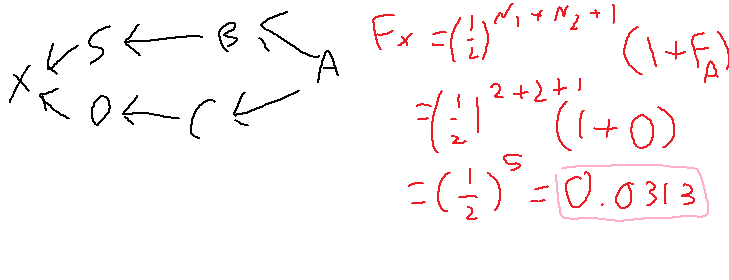 X S B A
D C
Fx = (1/2)^N1+N2+1 (1+FA)
= (1/2)^2+2+1 (1+0)
= (1/2)^5 = 0.0313